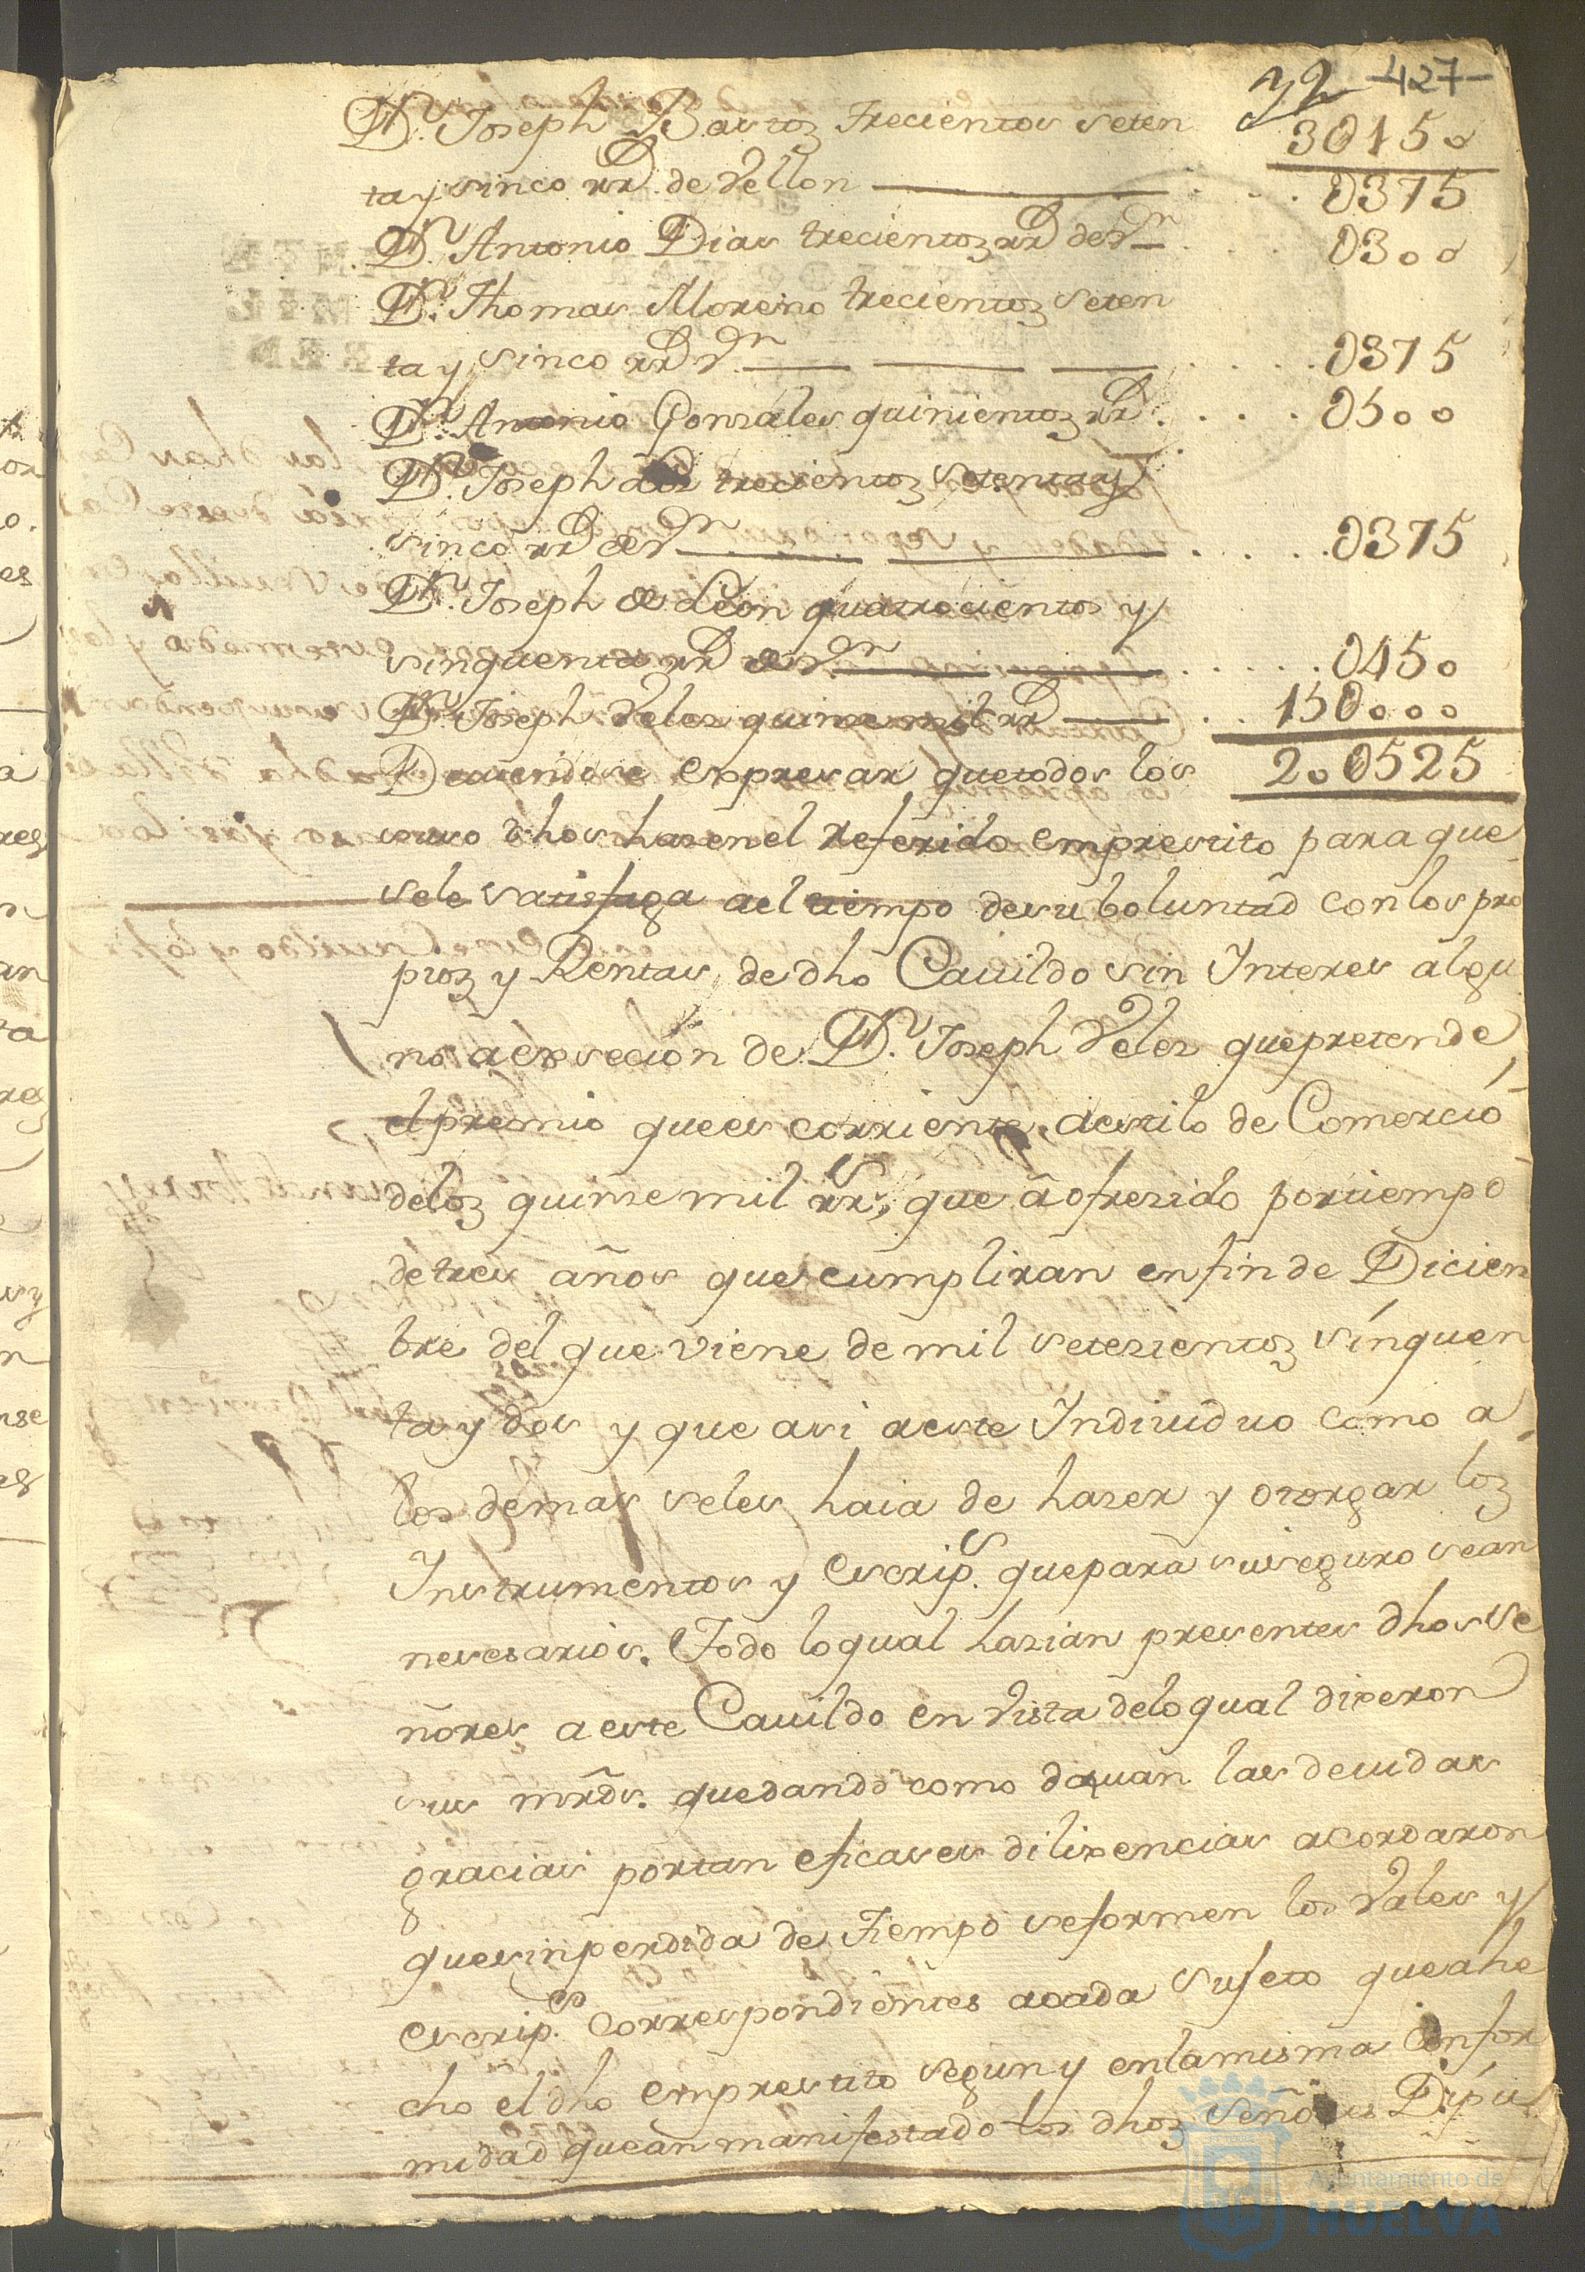 32 427
Dn. Joseph Bastos trecientos seten 3〇150
ta y sinco rrs. de Vellon 〇375
Dn. Antonio Dias trecientos rrs. de Vn 〇300
Dn. Thomas Moreno trecientos seten
ta y sinco rrs. Vn 〇375
Dn. Antonio Gonzales quinientos rrs. 〇500
Dn. Joseph trecientos setenta y
sinco rrs. de Vn 〇375
Dn. Joseph de Leon quatrocientos y
sinquenta rrs. de Vn 〇450
Dn. Joseph Velez quinse mil rrs. 15〇000
Deviendose expresar que todos los 20〇525
suso dhos hasen el referido emprestito para que
sele satisfaga ael tiempo desu boluntad con los pro
pios y Rentas de dho Cavildo sin Interes algu
no a exsecion de Dn. Joseph Velez que pretende
el premio que es corriente a estilo de Comercio
delos quinse mil rrs, que a ofresido por tiempo
de tres años que cumpliran en fin de Dicien
bre del que viene de mil setesientos sinquen
ta y dos y que asi a este Individuo como a
los demas seles haia de haser y otorgar los
Instrumentos y Escrips. que para su seguro sean
nesesarios. Todo lo qual hasian presentes dhos Se
ñores a este Cavildo en Vista delo qual dixeron
sus mrds. quedando como davan las devidas
gracias por tan eficases dilixencias acordaron
que sin perdida de Tiempo se formen los Vales y
Escrips. correspondientes a cada Sujeto que a he
cho el dho emprestito segun y en la misma confor
midad que an manifestado los dhos Señores Dipu
Ayuntamiento de
HUELVA